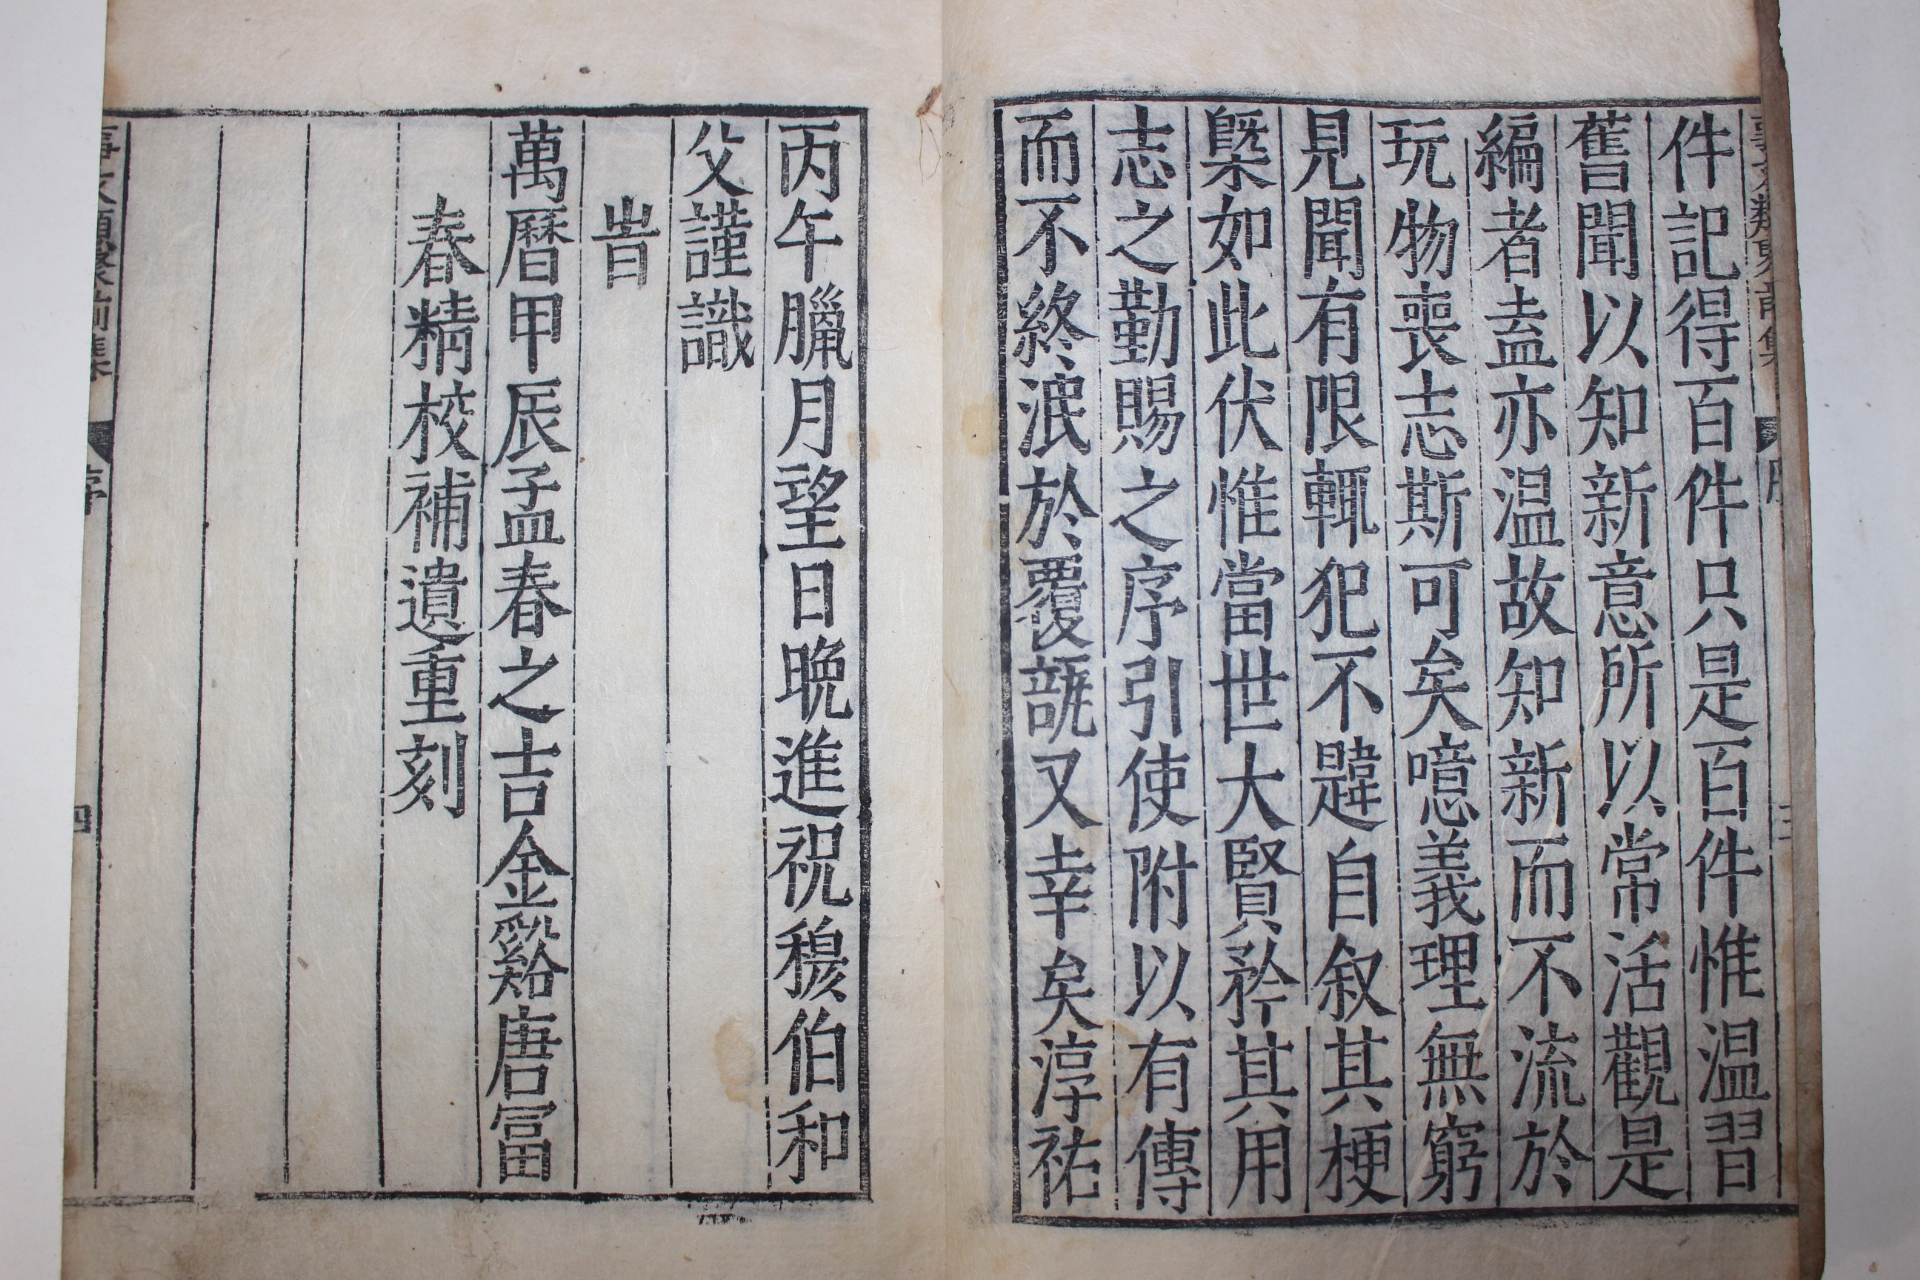 件記得百件只是百件惟温習
舊聞以知新意所以常活觀是
編者盍亦温故知新而不流於
玩物喪志斯可矣噫義理無窮
見聞有限輒犯不韙自叙其梗
槩如此伏惟當世大賢矜其用
志之勤賜之序引使附以有傳
而不終泯於覆瓿又幸矣淳祐
丙午臘月望日晚進祝穆伯和
父謹識
旹
萬曆甲辰孟春之吉金谿唐富
春精校補遺重刻
事文類聚前集
序
四